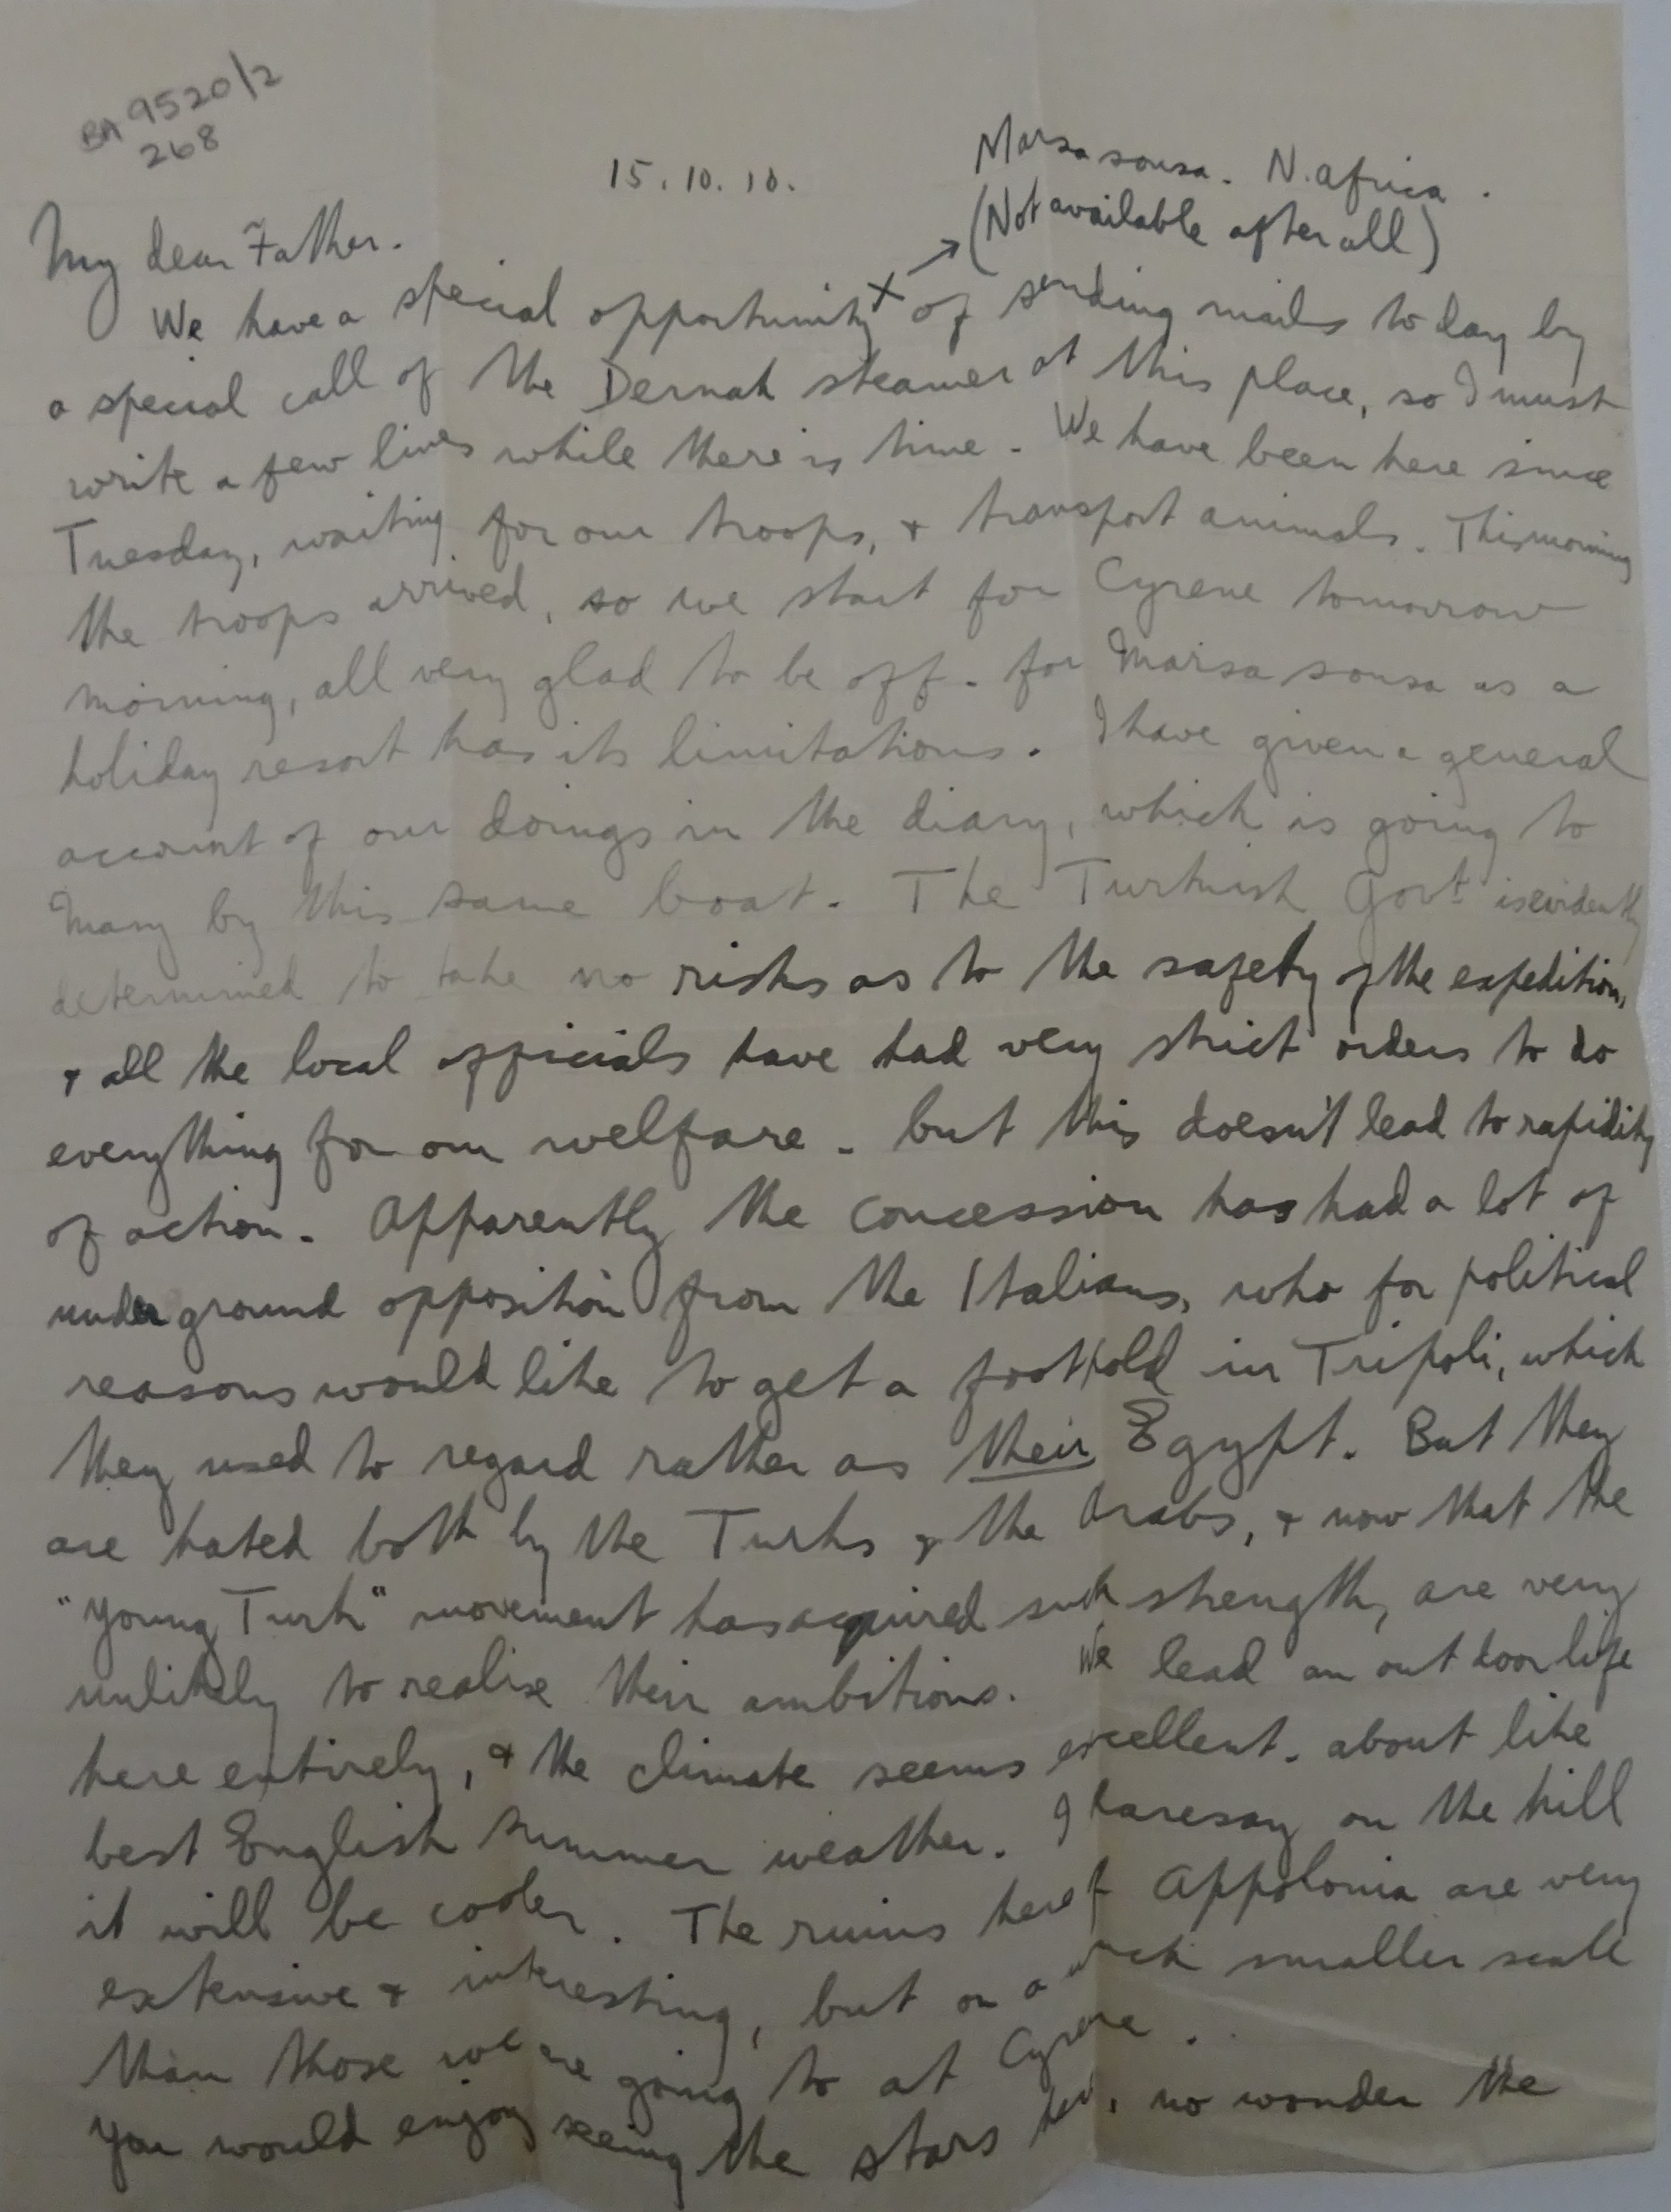 BA 9520/2
268
15.10.10.
Marsa sousa. N. Africa.
(Not available after all)
My dear Father.
We have a special opportunity x of sending mails today by
a special call of the Dernah steamer at this place, so I must
write a few lines while there is time. We have been here since
Tuesday, waiting for our troops, & transport animals. This morning
the troops arrived, so we start for Cyrene tomorrow
morning, all very glad to be off. for Marsa sousa as a
holiday resort has its limitations. I have given a general
account of our doings in the diary, which is going to
Mary by this same boat. The Turkish Govt is evidently
determined to take no risks as to the safety of the expedition,
& all the local officials have had very strict orders to do
everything for our welfare. but this doesn't lead to rapidity
of action. Apparently the concession has had a lot of
underground opposition from the Italians, who for political
reasons would like to get a foothold in Tripoli, which
they used to regard rather as their Egypt. But they
are hated both by the Turks & the Arabs, & now that the
"Young Turk" movement has acquired such strength, are very
unlikely to realise their ambitions. We lead an outdoor life
here entirely, & the climate seems excellent. about like
best English summer weather. I daresay on the hill
it will be cooler. The ruins here of Appolonia are very
extensive & interesting, but on a much smaller scale
than those we are going to at Cyrene.
You would enjoy seeing the stars here, no wonder the